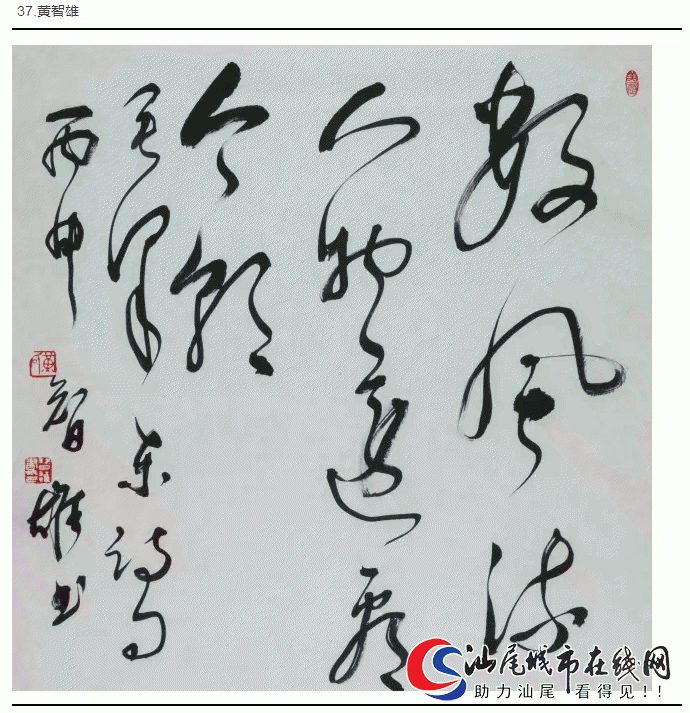 37.黄智雄
数风流
人物还看
今朝
毛泽东诗句
丙申
智雄书
汕尾城市在线网
助力汕尾 看得见!!